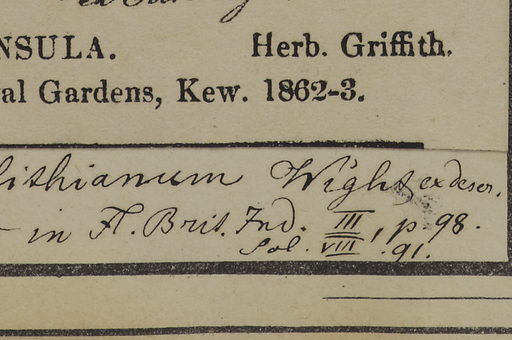 NSULA. Herb. Griffith.
al Gardens, Kew. 1862-3.
lithianum Wight ex descr.
in Fl. Brit. Ind. III, p. 98.
Sol. VIII. 91.